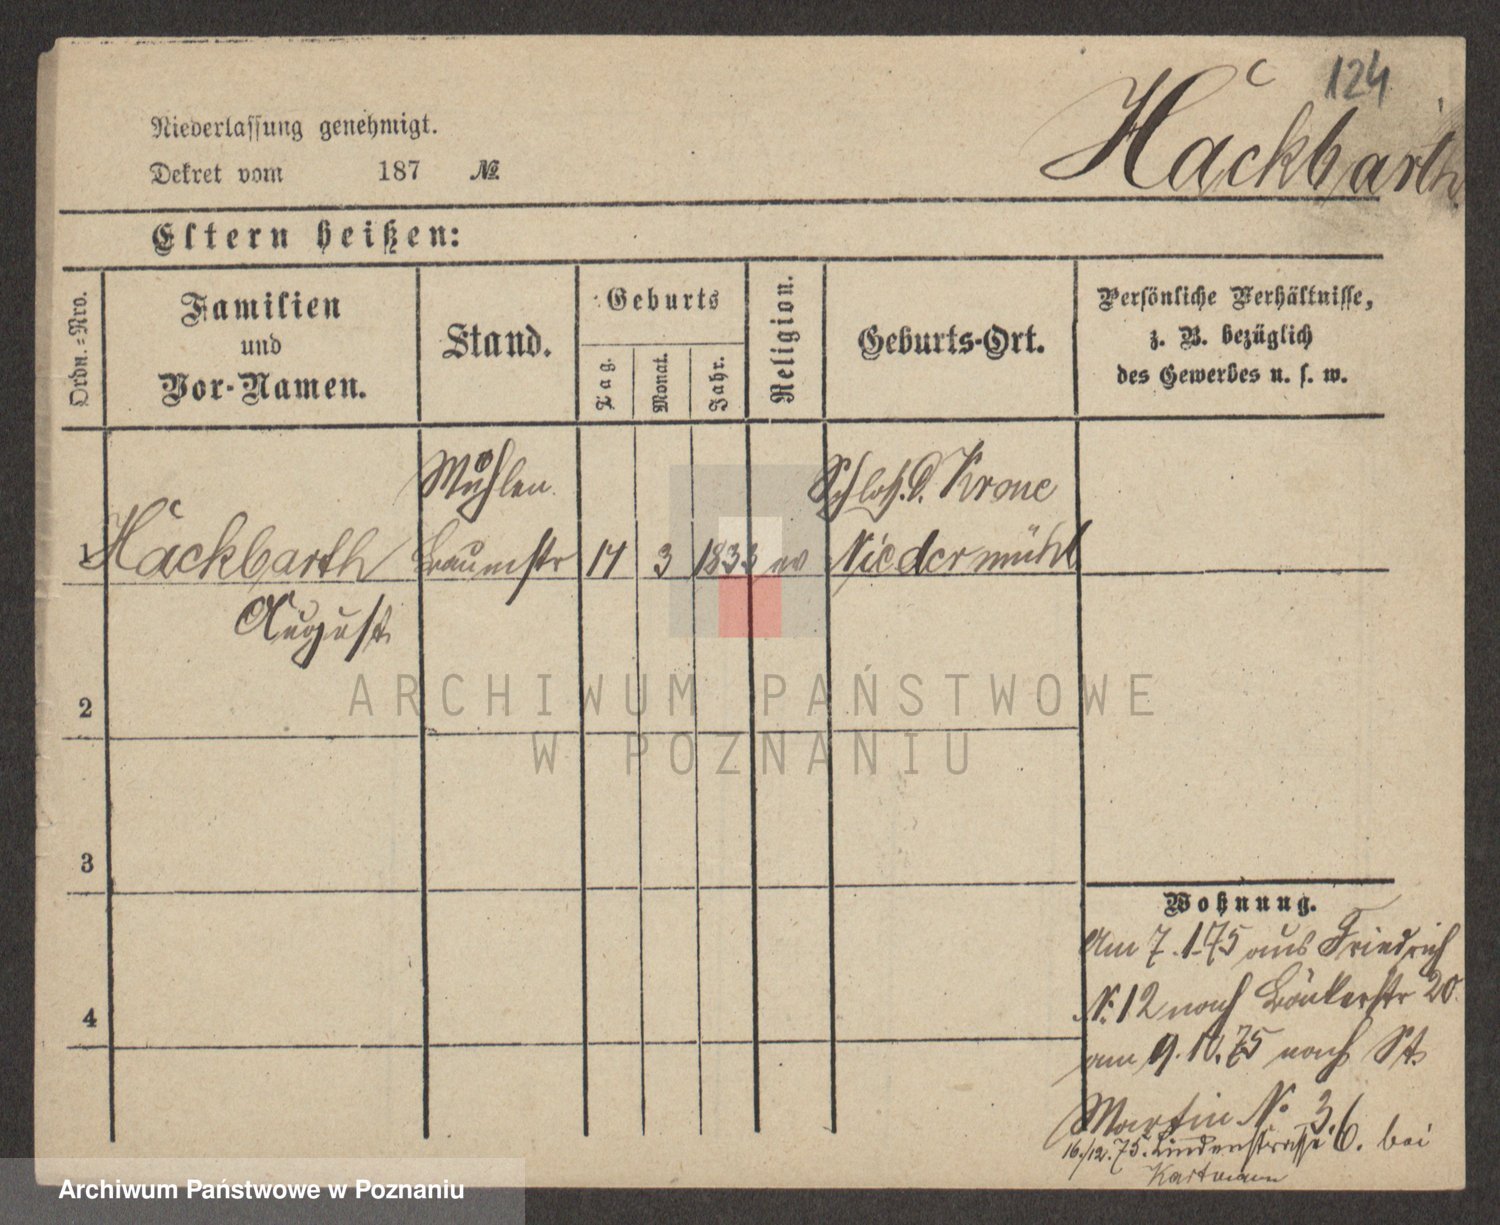 124
Hackbarth
Niederlassung genehmigt.
Dekret vom 187 №
Eltern heißen:
Ordn.=Nro.
Familien
und
Vor-Namen.
Stand.
Geburts
Tag.
Monat.
Jahr.
Religion.
Geburts-Ort.
Persönliche Verhältnisse,
z. B. bezüglich
des Gewerbes u. s. w.
Mühlen
Schloß. D. Krone
1 Hackbarth baumstr 14 3 1833 ev Niedermühl
August
2
3
4
Wohnung.
Am 7.1.75 aus Friedrich
N. 12 nach Bäckerstr 20.
am 9.10.75 nach St.
Martin No 3.
16./12.75. Lindenstrasse 6. bei
Kartmann
ARCHIWUM PAŃSTWOWE
W POZNANIU
Archiwum Państwowe w Poznaniu